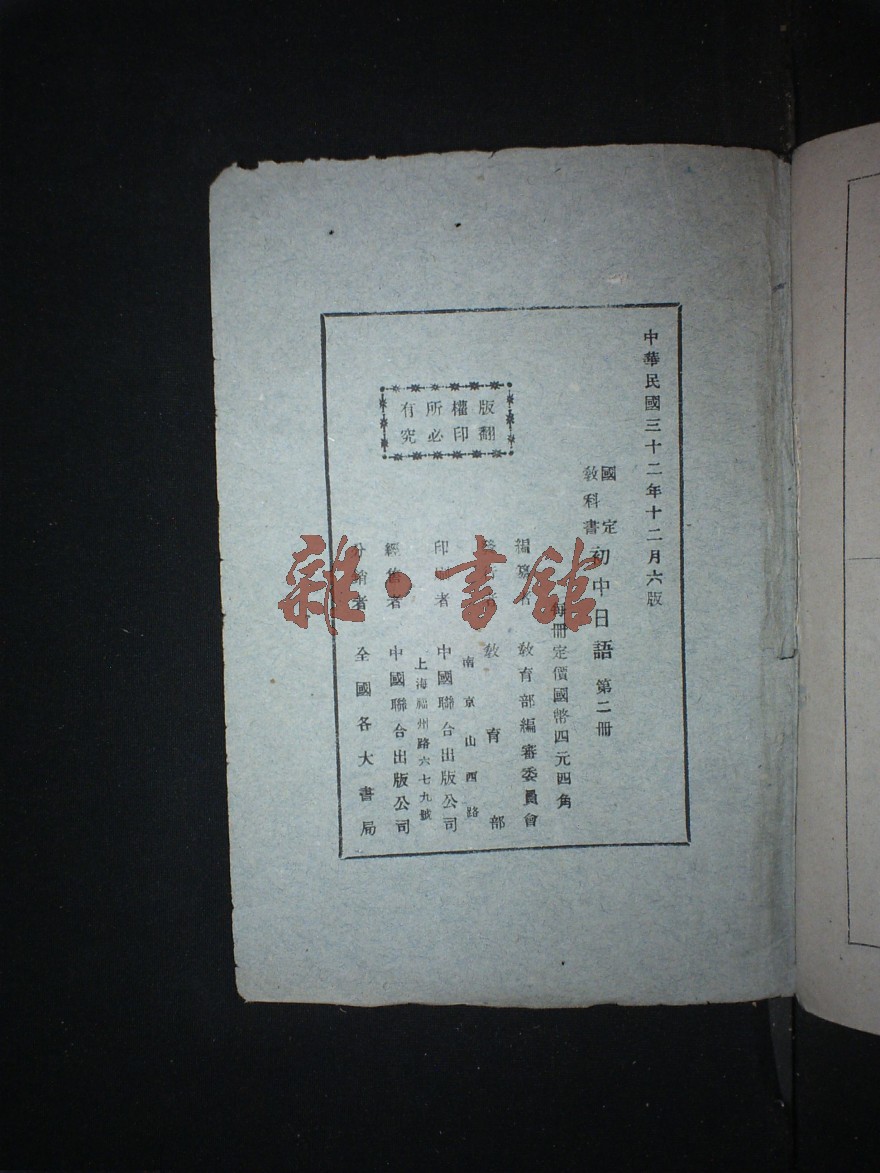 中華民國三十二年十二月六版
國定
教科書
初中日語 第二冊
每冊定價國幣四元四角
編纂者 教育部編審委員會
教育部
南京山西路
印刷者 中國聯合出版公司
上海福州路六七九號
經售者 中國聯合出版公司
分銷者 全國各大書局
版權所有
翻印必究
雜·書館